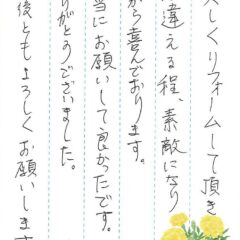 しくリフォームして頂き
違える程、素敵になり
から喜んでおります。
当にお願いして良かったです。
りがとうございました。
後ともよろしくお願いします